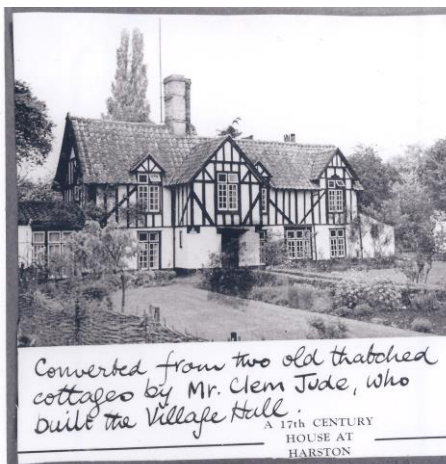 Converted from two old thatched
cottages by Mr. Clem Jude, who
built the Village Hall.
A 17th CENTURY
HOUSE AT
HARSTON